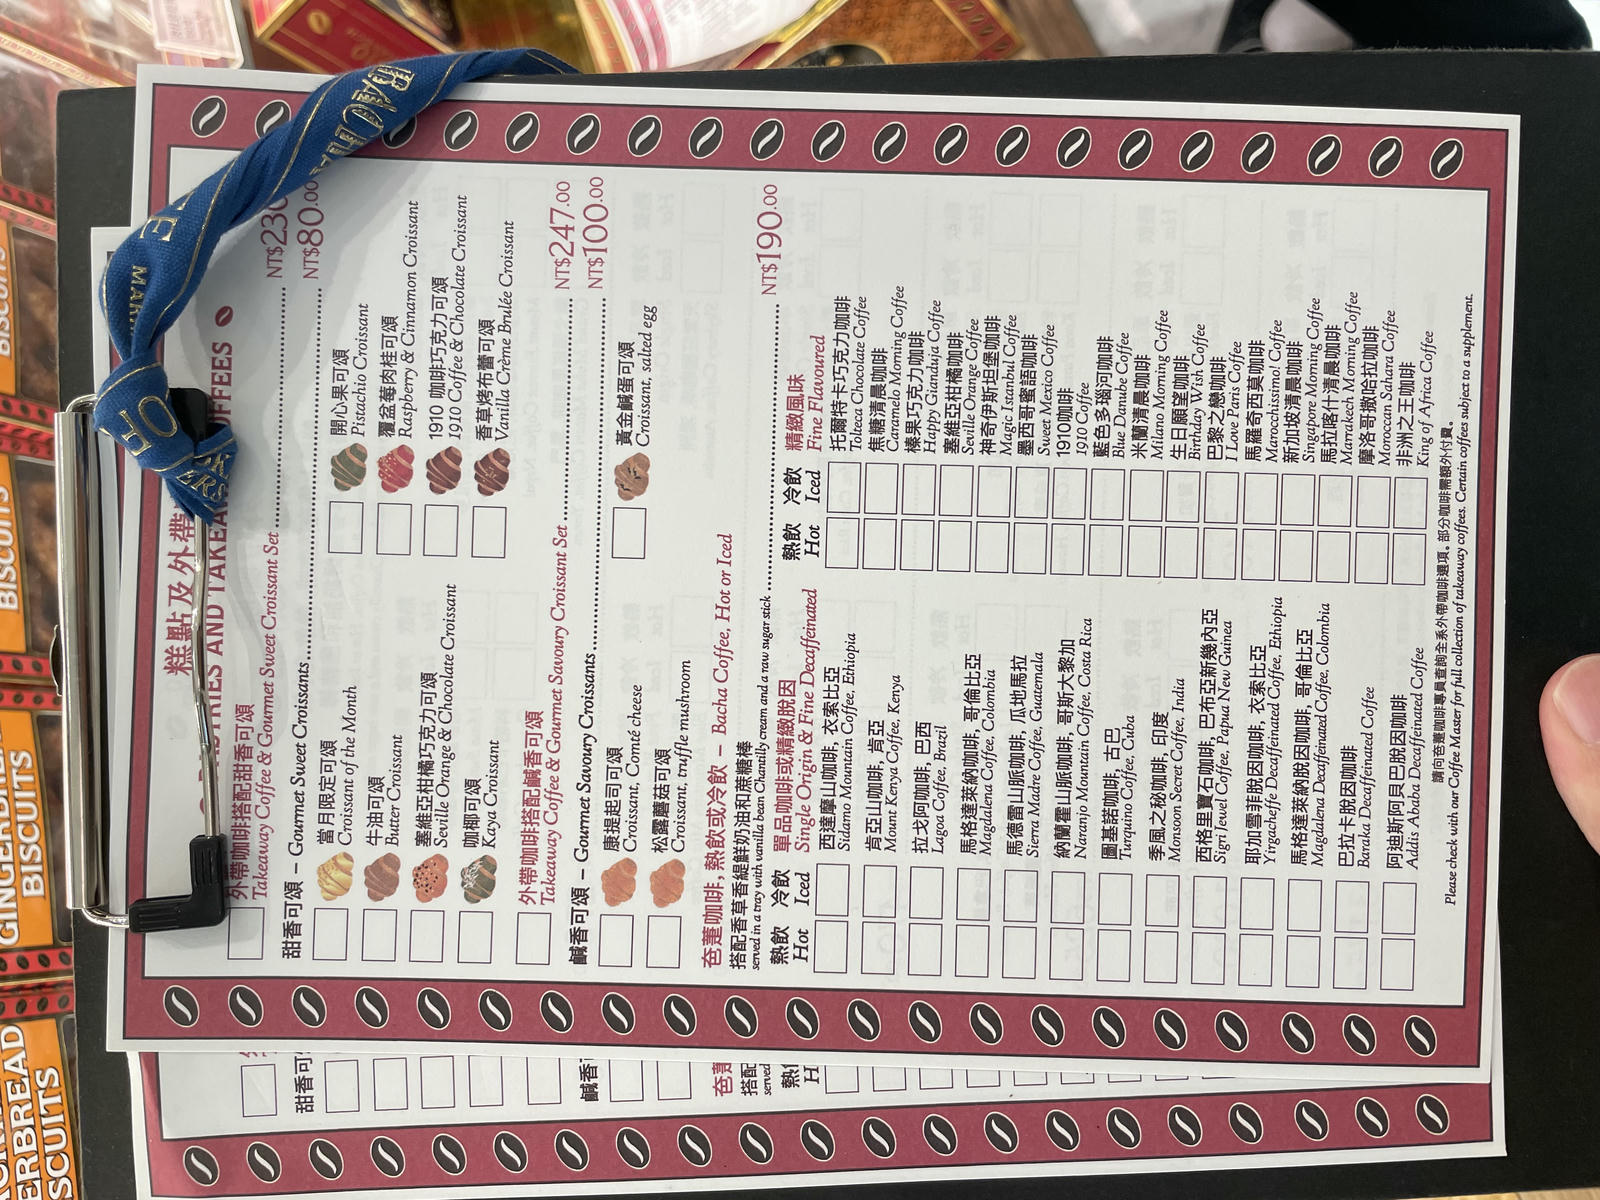 糕點及外帶
PASTRIES AND TAKEAWAY COFFEES
外帶咖啡搭配甜香可頌
Takeaway Coffee & Gourmet Sweet Croissant Set
NT$230
甜香可頌 – Gourmet Sweet Croissants
NT$80.00
當月限定可頌
Croissant of the Month
牛油可頌
Butter Croissant
塞維亞柑橘巧克力可頌
Seville Orange & Chocolate Croissant
咖椰可頌
Kaya Croissant
開心果可頌
Pistachio Croissant
覆盆莓肉桂可頌
Raspberry & Cinnamon Croissant
1910 咖啡巧克力可頌
1910 Coffee & Chocolate Croissant
香草烤布蕾可頌
Vanilla Crème Brulée Croissant
外帶咖啡搭配鹹香可頌
Takeaway Coffee & Gourmet Savoury Croissant Set
NT$247.00
鹹香可頌 – Gourmet Savoury Croissants
NT$100.00
康提起司可頌
Croissant, Comté cheese
松露蘑菇可頌
Croissant, truffle mushroom
黃金鹹蛋可頌
Croissant, salted egg
芭蕸咖啡, 熱飲或冷飲 – Bacha Coffee, Hot or Iced
搭配香草香緹鮮奶油和蔗糖棒
served in a tray with vanilla bean Chantilly cream and a raw sugar stick
NT$190.00
熱飲 冷飲 單品咖啡或精緻脫因
Hot Iced Single Origin & Fine Decaffeinated
西達摩山咖啡, 衣索比亞
Sidamo Mountain Coffee, Ethiopia
肯亞山咖啡, 肯亞
Mount Kenya Coffee, Kenya
拉戈阿咖啡, 巴西
Lagoa Coffee, Brazil
馬格達萊納咖啡, 哥倫比亞
Magdalena Coffee, Colombia
馬德雷山脈咖啡, 瓜地馬拉
Sierra Madre Coffee, Guatemala
納蘭霍山脈咖啡, 哥斯大黎加
Naranjo Mountain Coffee, Costa Rica
圖基諾咖啡, 古巴
Turquino Coffee, Cuba
季風之秘咖啡, 印度
Monsoon Secret Coffee, India
西格里寶石咖啡, 巴布亞新幾內亞
Sigri Jewel Coffee, Papua New Guinea
耶加雪菲脫因咖啡, 衣索比亞
Yirgacheffe Decaffeinated Coffee, Ethiopia
馬格達萊納脫因咖啡, 哥倫比亞
Magdalena Decaffeinated Coffee, Colombia
巴拉卡脫因咖啡
Baraka Decaffeinated Coffee
阿迪斯阿貝巴脫因咖啡
Addis Ababa Decaffeinated Coffee
熱飲 冷飲 精緻風味
Hot Iced Fine Flavoured
托爾特卡巧克力咖啡
Tolteca Chocolate Coffee
焦糖清晨咖啡
Caramelo Morning Coffee
榛果巧克力咖啡
Happy Gianduja Coffee
塞維亞柑橘咖啡
Seville Orange Coffee
神奇伊斯坦堡咖啡
Magic Istanbul Coffee
墨西哥蜜語咖啡
Sweet Mexico Coffee
1910咖啡
1910 Coffee
藍色多瑙河咖啡
Blue Danube Coffee
米蘭清晨咖啡
Milano Morning Coffee
生日願望咖啡
Birthday Wish Coffee
巴黎之戀咖啡
I Love Paris Coffee
馬羅奇西莫咖啡
Marocchissimo! Coffee
新加坡清晨咖啡
Singapore Morning Coffee
馬拉喀什清晨咖啡
Marrakech Morning Coffee
摩洛哥撒哈拉咖啡
Moroccan Sahara Coffee
非洲之王咖啡
King of Africa Coffee
請向芭蕸咖啡專員查詢全系外帶咖啡選項。部分咖啡需額外付費。
Please check with our Coffee Master for full collection of takeaway coffees. Certain coffees subject to a supplement.
BISCUITS
BISCUITS
BISCUITS
BISCUITS
甜香可
鹹香
搭配
served